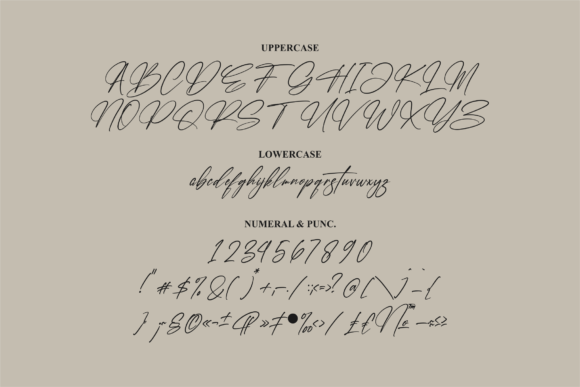 UPPERCASE
ABCDEFGHIJKLM
NOPQRSTUVWXYZ
LOWERCASE
abcdefghijklmnopqrstuvwxyz
NUMERAL & PUNC.
1234567890
!"#$%&()*+,-./:;<=>?@[\]^_`{
}¡§©«¬±®»‡●‰‹›/